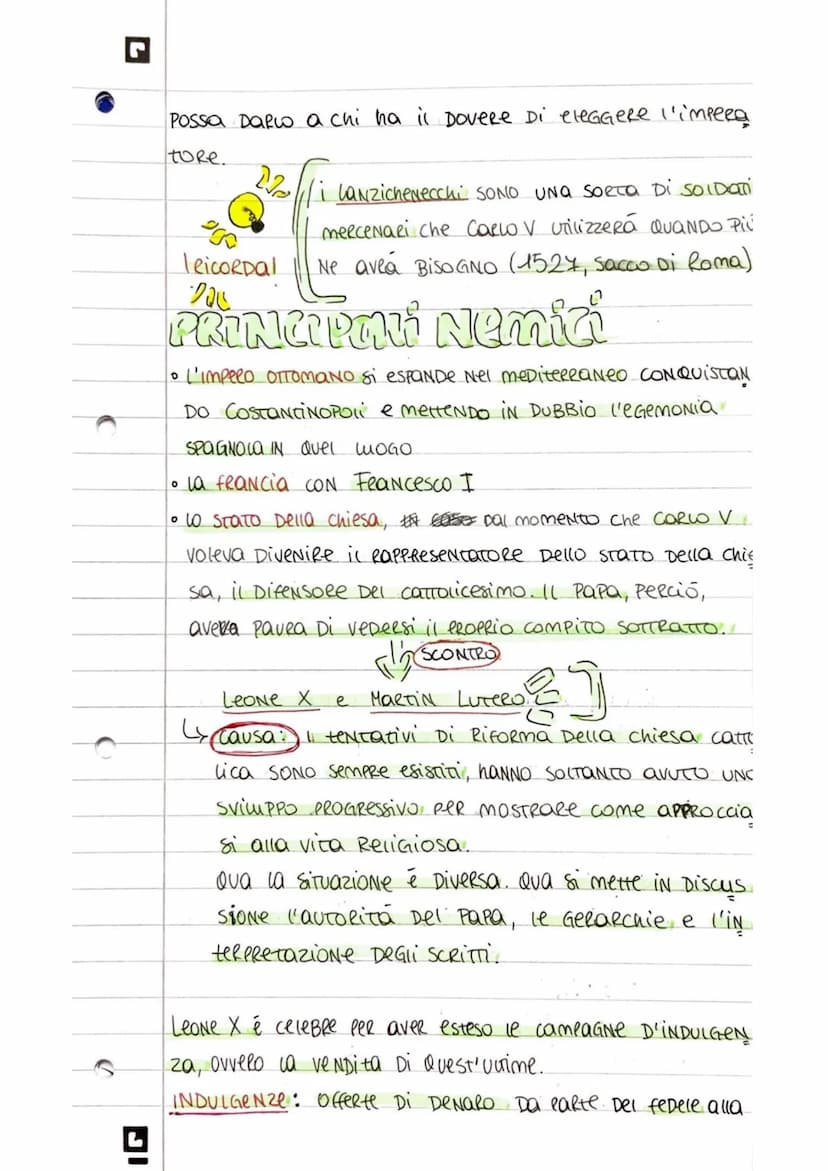 possa darlo a chi ha il dovere di eleggere l'impera
tore.
i lanzichenecchi sono una sorta di soldati
mercenari che Carlo V utilizzerá quando più
!ricorda! ne avrá bisogno (1527, sacco di Roma)
PRINCIPALI NEMICI
• l'impero ottomano si espande nel mediterraneo conquistan
do Costantinopoli e mettendo in dubbio l'egemonia
spagnola in quel luogo
• la francia con Francesco I
• lo stato della chiesa, dal momento che Carlo V
voleva divenire il rappresentatore dello stato della chie
sa, il difensore del cattolicesimo. Il papa, perció,
aveva paura di vedersi il proprio compito sottratto.
SCONTRO
Leone X e Martin Lutero
↳ causa: I tentativi di riforma della chiesa catto
lica sono sempre esistiti, hanno soltanto avuto uno
sviluppo progressivo per mostrare come approccia
si alla vita religiosa.
Qua la situazione é diversa. Qua si mette in discus
sione l'autoritá del papa, le gerarchie e l'in
terpretazione degli scritti.
Leone X é celebre per aver esteso le campagne d'indulgen
za, ovvero la vendita di quest'ultime.
INDULGENZE: offerte di denaro da parte del fedele alla